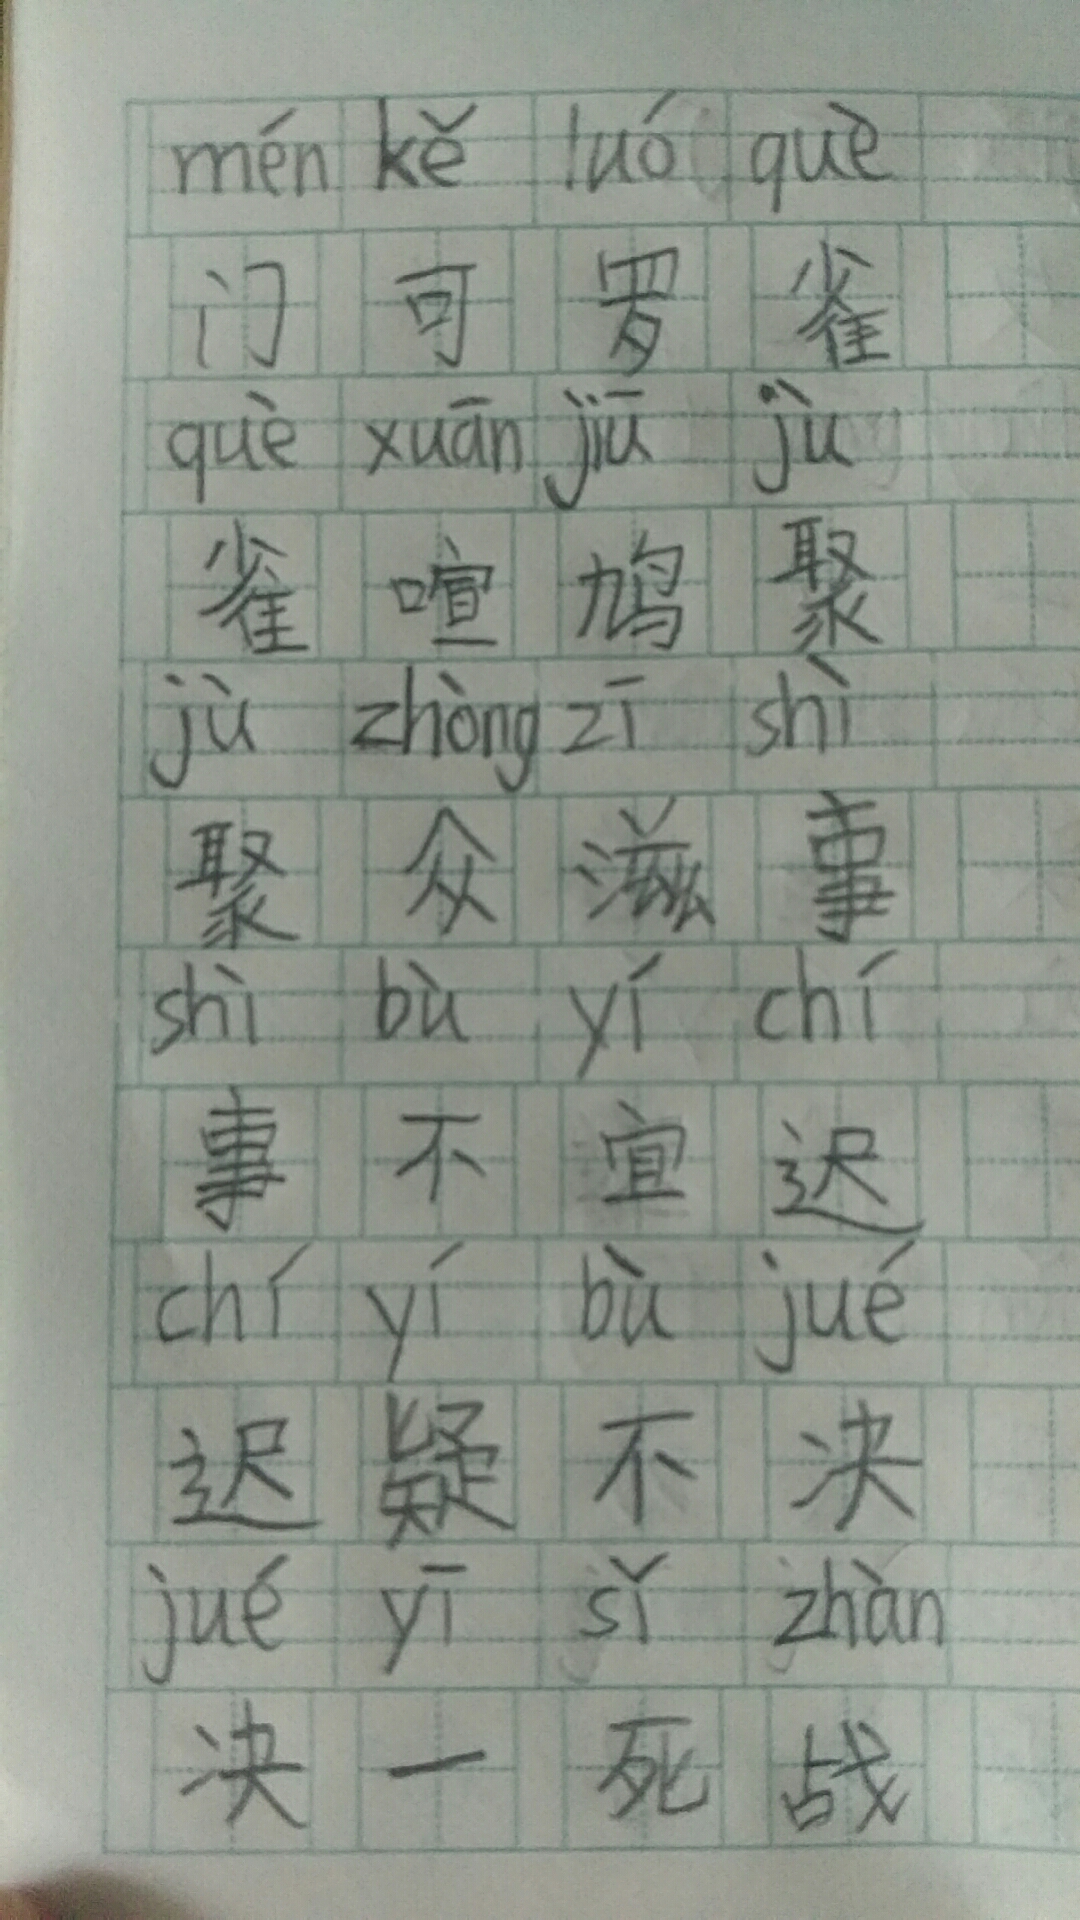 mén kě luó què
门 可 罗 雀
què xuān jiū jù
雀 喧 鸠 聚
jù zhòng zī shì
聚 众 滋 事
shì bù yí chí
事 不 宜 迟
chí yí bù jué
迟 疑 不 决
jué yī sǐ zhàn
决 一 死 战